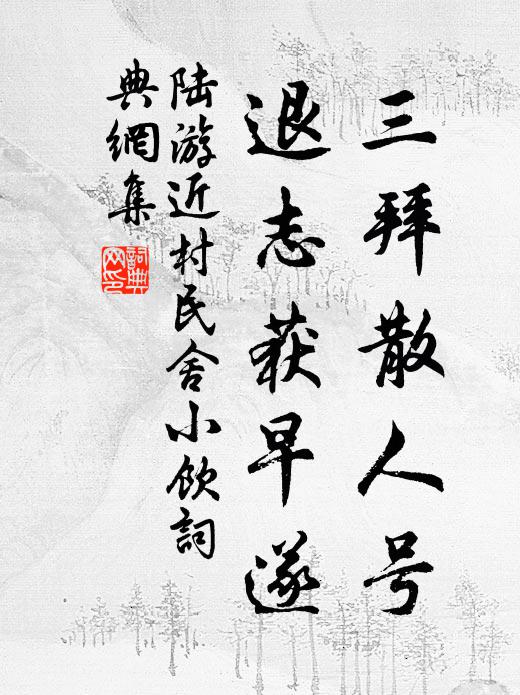 三拜散人号
退志获早遂
陆游近村民舍小饮词
典網集
詞典網印